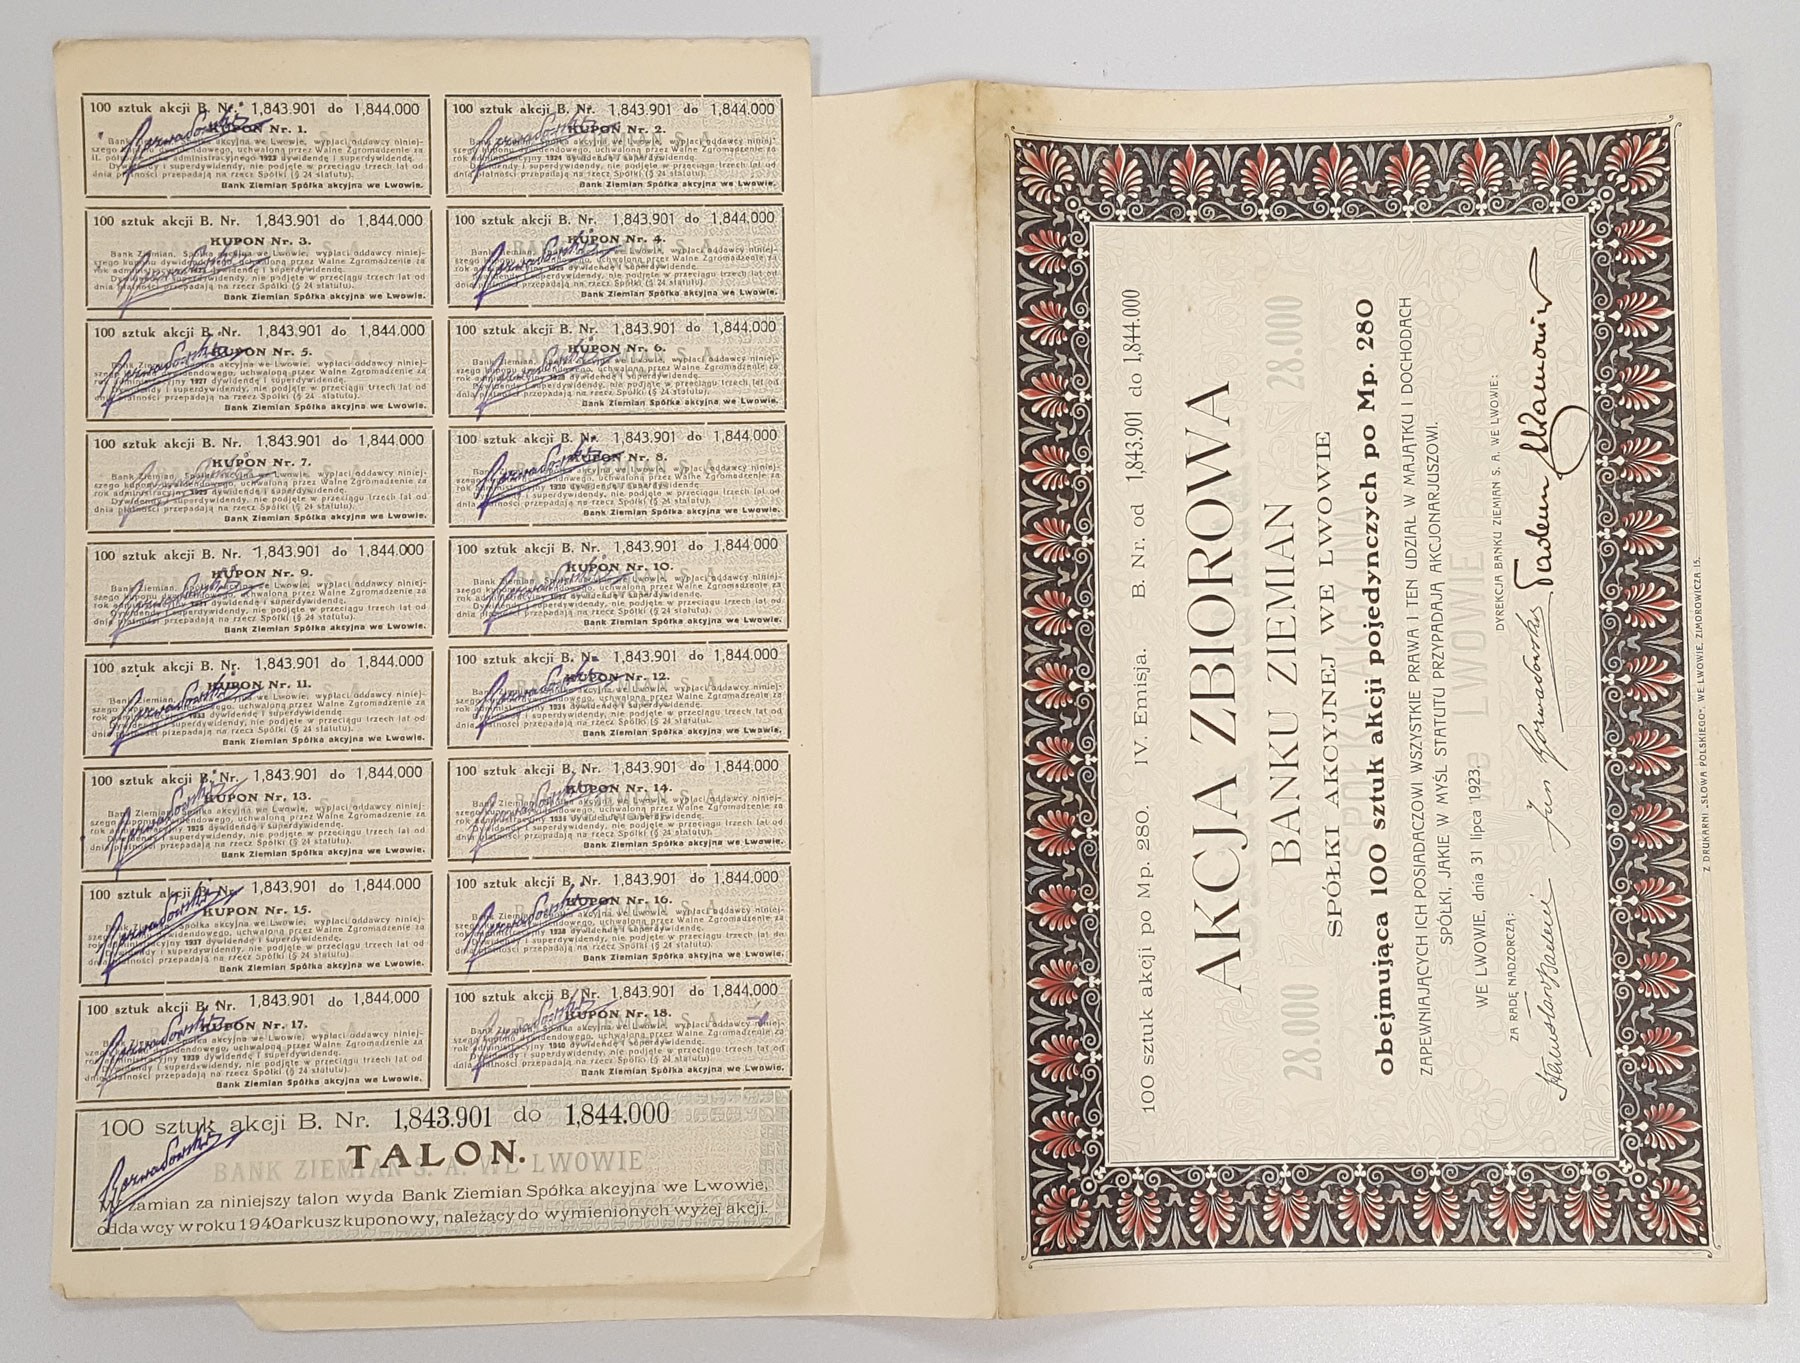 100 sztuk akcji B. Nr. 1,843.901 do 1,844.000
KUPON Nr. 1.
Bank Ziemian, Spółka akcyjna we Lwowie, wypłaci oddawcy niniej-
szego kuponu dywidendowego, uchwaloną przez Walne Zgromadzenie za
II. półrocze administracyjnego 1923 dywidendę i superdywidendę.
Dywidendy i superdywidendy, nie podjęte w przeciągu trzech lat od
dnia płatności przepadają na rzecz Spółki (§ 24 statutu).
Bank Ziemian Spółka akcyjna we Lwowie.
Rozwadowski
100 sztuk akcji B. Nr. 1,843.901 do 1,844.000
KUPON Nr. 2.
Bank Ziemian, Spółka akcyjna we Lwowie, wypłaci oddawcy niniej-
szego kuponu dywidendowego, uchwaloną przez Walne Zgromadzenie za
rok administracyjny 1924 dywidendę i superdywidendę.
Dywidendy i superdywidendy, nie podjęte w przeciągu trzech lat od
dnia płatności przepadają na rzecz Spółki (§ 24 statutu).
Bank Ziemian Spółka akcyjna we Lwowie.
Rozwadowski
100 sztuk akcji B. Nr. 1,843.901 do 1,844.000
KUPON Nr. 3.
Bank Ziemian, Spółka akcyjna we Lwowie, wypłaci oddawcy niniej-
szego kuponu dywidendowego, uchwaloną przez Walne Zgromadzenie za
rok administracyjny 1925 dywidendę i superdywidendę.
Dywidendy i superdywidendy, nie podjęte w przeciągu trzech lat od
dnia płatności przepadają na rzecz Spółki (§ 24 statutu).
Bank Ziemian Spółka akcyjna we Lwowie.
Rozwadowski
100 sztuk akcji B. Nr. 1,843.901 do 1,844.000
KUPON Nr. 4.
Bank Ziemian, Spółka akcyjna we Lwowie, wypłaci oddawcy niniej-
szego kuponu dywidendowego, uchwaloną przez Walne Zgromadzenie za
rok administracyjny 1926 dywidendę i superdywidendę.
Dywidendy i superdywidendy, nie podjęte w przeciągu trzech lat od
dnia płatności przepadają na rzecz Spółki (§ 24 statutu).
Bank Ziemian Spółka akcyjna we Lwowie.
Rozwadowski
100 sztuk akcji B. Nr. 1,843.901 do 1,844.000
KUPON Nr. 5.
Bank Ziemian, Spółka akcyjna we Lwowie, wypłaci oddawcy niniej-
szego kuponu dywidendowego, uchwaloną przez Walne Zgromadzenie za
rok administracyjny 1927 dywidendę i superdywidendę.
Dywidendy i superdywidendy, nie podjęte w przeciągu trzech lat od
dnia płatności przepadają na rzecz Spółki (§ 24 statutu).
Bank Ziemian Spółka akcyjna we Lwowie.
Rozwadowski
100 sztuk akcji B. Nr. 1,843.901 do 1,844.000
KUPON Nr. 6.
Bank Ziemian, Spółka akcyjna we Lwowie, wypłaci oddawcy niniej-
szego kuponu dywidendowego, uchwaloną przez Walne Zgromadzenie za
rok administracyjny 1928 dywidendę i superdywidendę.
Dywidendy i superdywidendy, nie podjęte w przeciągu trzech lat od
dnia płatności przepadają na rzecz Spółki (§ 24 statutu).
Bank Ziemian Spółka akcyjna we Lwowie.
Rozwadowski
100 sztuk akcji B. Nr. 1,843.901 do 1,844.000
KUPON Nr. 7.
Bank Ziemian, Spółka akcyjna we Lwowie, wypłaci oddawcy niniej-
szego kuponu dywidendowego, uchwaloną przez Walne Zgromadzenie za
rok administracyjny 1929 dywidendę i superdywidendę.
Dywidendy i superdywidendy, nie podjęte w przeciągu trzech lat od
dnia płatności przepadają na rzecz Spółki (§ 24 statutu).
Bank Ziemian Spółka akcyjna we Lwowie.
Rozwadowski
100 sztuk akcji B. Nr. 1,843.901 do 1,844.000
KUPON Nr. 8.
Bank Ziemian, Spółka akcyjna we Lwowie, wypłaci oddawcy niniej-
szego kuponu dywidendowego, uchwaloną przez Walne Zgromadzenie za
rok administracyjny 1930 dywidendę i superdywidendę.
Dywidendy i superdywidendy, nie podjęte w przeciągu trzech lat od
dnia płatności przepadają na rzecz Spółki (§ 24 statutu).
Bank Ziemian Spółka akcyjna we Lwowie.
Rozwadowski
100 sztuk akcji B. Nr. 1,843.901 do 1,844.000
KUPON Nr. 9.
Bank Ziemian, Spółka akcyjna we Lwowie, wypłaci oddawcy niniej-
szego kuponu dywidendowego, uchwaloną przez Walne Zgromadzenie za
rok administracyjny 1931 dywidendę i superdywidendę.
Dywidendy i superdywidendy, nie podjęte w przeciągu trzech lat od
dnia płatności przepadają na rzecz Spółki (§ 24 statutu).
Bank Ziemian Spółka akcyjna we Lwowie.
Rozwadowski
100 sztuk akcji B. Nr. 1,843.901 do 1,844.000
KUPON Nr. 10.
Bank Ziemian, Spółka akcyjna we Lwowie, wypłaci oddawcy niniej-
szego kuponu dywidendowego, uchwaloną przez Walne Zgromadzenie za
rok administracyjny 1932 dywidendę i superdywidendę.
Dywidendy i superdywidendy, nie podjęte w przeciągu trzech lat od
dnia płatności przepadają na rzecz Spółki (§ 24 statutu).
Bank Ziemian Spółka akcyjna we Lwowie.
Rozwadowski
100 sztuk akcji B. Nr. 1,843.901 do 1,844.000
KUPON Nr. 11.
Bank Ziemian, Spółka akcyjna we Lwowie, wypłaci oddawcy niniej-
szego kuponu dywidendowego, uchwaloną przez Walne Zgromadzenie za
rok administracyjny 1933 dywidendę i superdywidendę.
Dywidendy i superdywidendy, nie podjęte w przeciągu trzech lat od
dnia płatności przepadają na rzecz Spółki (§ 24 statutu).
Bank Ziemian Spółka akcyjna we Lwowie.
Rozwadowski
100 sztuk akcji B. Nr. 1,843.901 do 1,844.000
KUPON Nr. 12.
Bank Ziemian, Spółka akcyjna we Lwowie, wypłaci oddawcy niniej-
szego kuponu dywidendowego, uchwaloną przez Walne Zgromadzenie za
rok administracyjny 1934 dywidendę i superdywidendę.
Dywidendy i superdywidendy, nie podjęte w przeciągu trzech lat od
dnia płatności przepadają na rzecz Spółki (§ 24 statutu).
Bank Ziemian Spółka akcyjna we Lwowie.
Rozwadowski
100 sztuk akcji B. Nr. 1,843.901 do 1,844.000
KUPON Nr. 13.
Bank Ziemian, Spółka akcyjna we Lwowie, wypłaci oddawcy niniej-
szego kuponu dywidendowego, uchwaloną przez Walne Zgromadzenie za
rok administracyjny 1935 dywidendę i superdywidendę.
Dywidendy i superdywidendy, nie podjęte w przeciągu trzech lat od
dnia płatności przepadają na rzecz Spółki (§ 24 statutu).
Bank Ziemian Spółka akcyjna we Lwowie.
Rozwadowski
100 sztuk akcji B. Nr. 1,843.901 do 1,844.000
KUPON Nr. 14.
Bank Ziemian, Spółka akcyjna we Lwowie, wypłaci oddawcy niniej-
szego kuponu dywidendowego, uchwaloną przez Walne Zgromadzenie za
rok administracyjny 1936 dywidendę i superdywidendę.
Dywidendy i superdywidendy, nie podjęte w przeciągu trzech lat od
dnia płatności przepadają na rzecz Spółki (§ 24 statutu).
Bank Ziemian Spółka akcyjna we Lwowie.
Rozwadowski
100 sztuk akcji B. Nr. 1,843.901 do 1,844.000
KUPON Nr. 15.
Bank Ziemian, Spółka akcyjna we Lwowie, wypłaci oddawcy niniej-
szego kuponu dywidendowego, uchwaloną przez Walne Zgromadzenie za
rok administracyjny 1937 dywidendę i superdywidendę.
Dywidendy i superdywidendy, nie podjęte w przeciągu trzech lat od
dnia płatności przepadają na rzecz Spółki (§ 24 statutu).
Bank Ziemian Spółka akcyjna we Lwowie.
Rozwadowski
100 sztuk akcji B. Nr. 1,843.901 do 1,844.000
KUPON Nr. 16.
Bank Ziemian, Spółka akcyjna we Lwowie, wypłaci oddawcy niniej-
szego kuponu dywidendowego, uchwaloną przez Walne Zgromadzenie za
rok administracyjny 1938 dywidendę i superdywidendę.
Dywidendy i superdywidendy, nie podjęte w przeciągu trzech lat od
dnia płatności przepadają na rzecz Spółki (§ 24 statutu).
Bank Ziemian Spółka akcyjna we Lwowie.
Rozwadowski
100 sztuk akcji B. Nr. 1,843.901 do 1,844.000
KUPON Nr. 17.
Bank Ziemian, Spółka akcyjna we Lwowie, wypłaci oddawcy niniej-
szego kuponu dywidendowego, uchwaloną przez Walne Zgromadzenie za
rok administracyjny 1939 dywidendę i superdywidendę.
Dywidendy i superdywidendy, nie podjęte w przeciągu trzech lat od
dnia płatności przepadają na rzecz Spółki (§ 24 statutu).
Bank Ziemian Spółka akcyjna we Lwowie.
Rozwadowski
100 sztuk akcji B. Nr. 1,843.901 do 1,844.000
KUPON Nr. 18.
Bank Ziemian, Spółka akcyjna we Lwowie, wypłaci oddawcy niniej-
szego kuponu dywidendowego, uchwaloną przez Walne Zgromadzenie za
rok administracyjny 1940 dywidendę i superdywidendę.
Dywidendy i superdywidendy, nie podjęte w przeciągu trzech lat od
dnia płatności przepadają na rzecz Spółki (§ 24 statutu).
Bank Ziemian Spółka akcyjna we Lwowie.
Rozwadowski
100 sztuk akcji B. Nr. 1,843.901 do 1,844.000
TALON.
BANK ZIEMIAN S. A. WE LWOWIE
Rozwadowski
W zamian za niniejszy talon wyda Bank Ziemian Spółka akcyjna we Lwowie,
oddawcy w roku 1940 arkusz kuponowy, należący do wymienionych wyżej akcji.
100 sztuk akcji po Mp. 280. IV. Emisja. B. Nr. od 1,843.901 do 1,844.000
AKCJA ZBIOROWA
BANKU ZIEMIAN
28.000 28.000
SPÓŁKI AKCYJNEJ WE LWOWIE
obejmująca 100 sztuk akcji pojedynczych po Mp. 280
ZAPEWNIAJĄCYCH ICH POSIADACZOWI WSZYSTKIE PRAWA I TEN UDZIAŁ W MAJĄTKU I DOCHODACH
SPÓŁKI, JAKIE W MYŚL STATUTU PRZYPADAJĄ AKCJONARJUSZOWI.
WE LWOWIE, dnia 31 lipca 1923.
ZA RADĘ NADZORCZĄ: DYREKCJA BANKU ZIEMIAN S. A. WE LWOWIE:
Stanisław Badeni Jan Rozwadowski Tadeusz
Z DRUKARNI „SŁOWA POLSKIEGO", WE LWOWIE, ZIMOROWICZA 15.